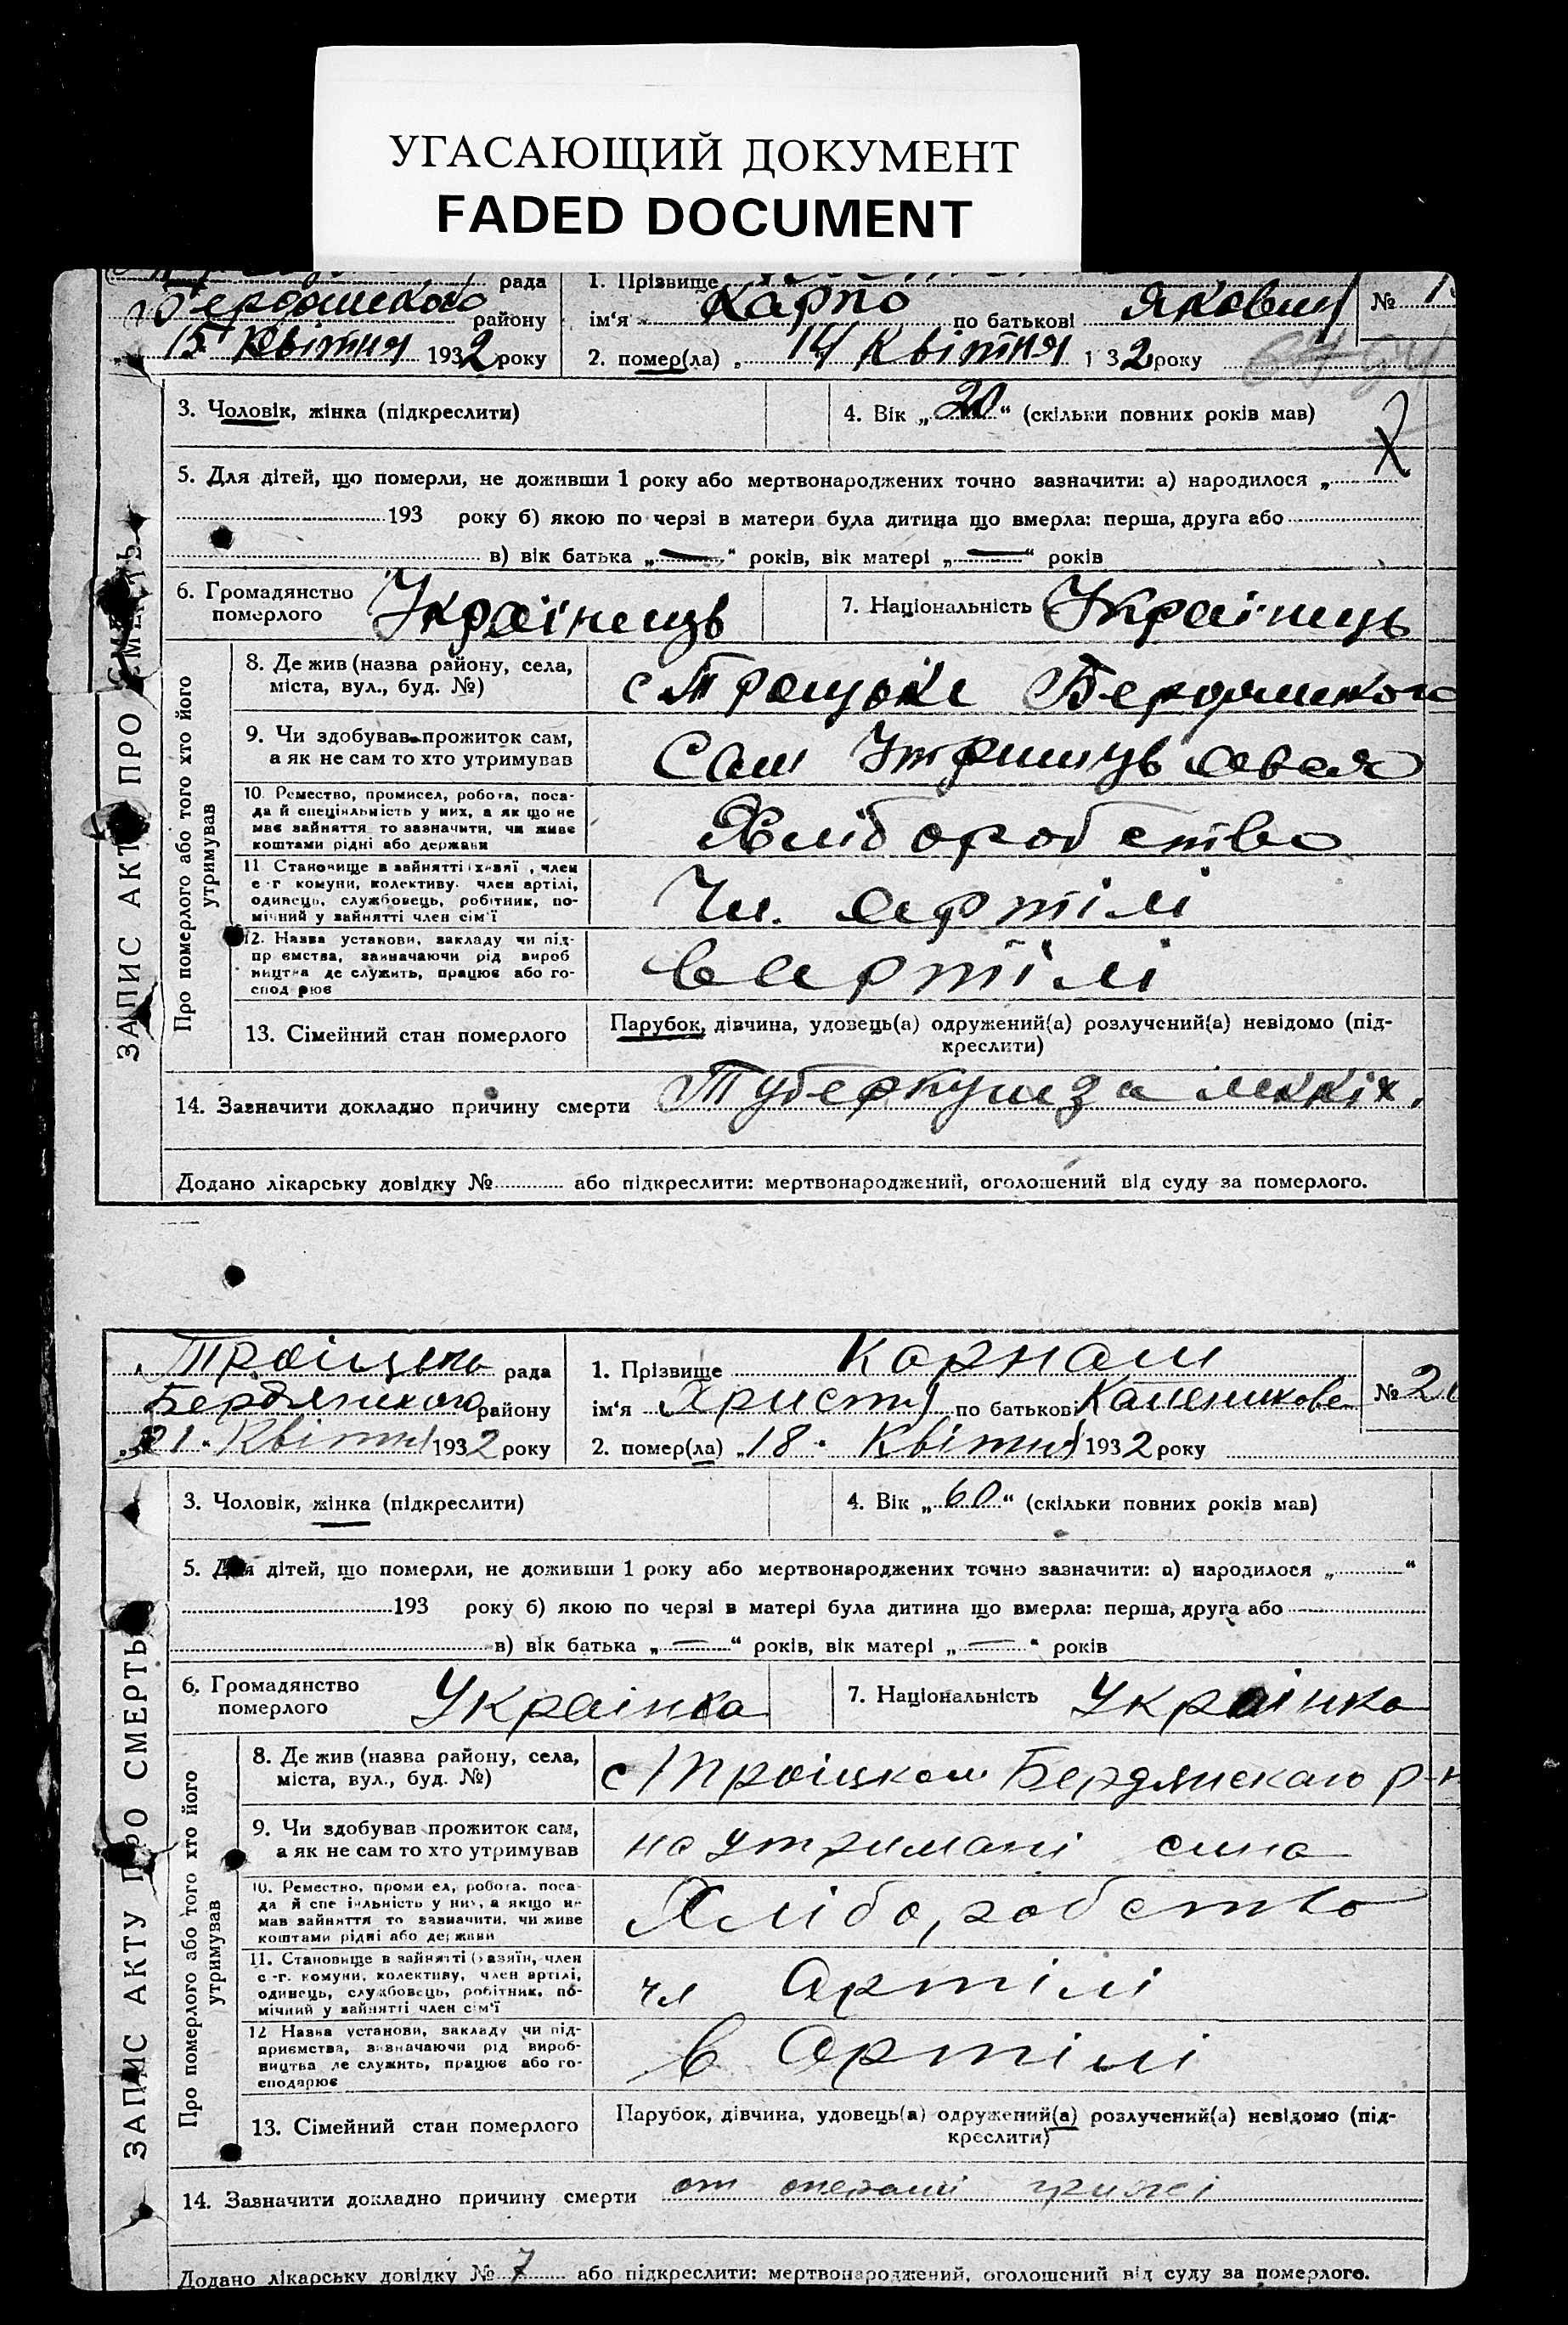 УГАСАЮЩИЙ ДОКУМЕНТ
FADED DOCUMENT
рада
1. Прізвище
району
ім'я Карпо по батькові Якович
№ 1
15 Квітня 1932 року
2. помер(ла) „ 14 Квітня 1 32 року
3. Чоловік, жінка (підкреслити)
4. Вік „20“ (скільки повних років мав)
5. Для дітей, що померли, не доживши 1 року або мертвонароджених точно зазначити: а) народилося „
193 року б) якою по черзі в матери була дитина що вмерла: перша, друга або
в) вік батька „—“ років, вік матері „—“ років
6. Громадянство
померлого
Українець
7. Національність Українець
ЗАПИС АКТУ ПРО СМЕРТЬ
Про померлого або того хто його
утримував
8. Де жив (назва району, села,
міста, вул., буд. №)
9. Чи здобував прожиток сам,
а як не сам то хто утримував
Сам
10. Ремество, промисел, робота, поса-
да й спеціяльність у них, а як що не
має зайняття то зазначити, чи живе
коштами рідні або держави
Хліборобство
11. Становище в зайнятті (хазяї, член
с-г комуни, колективу, член артілі,
одинець, службовець, робітник, по-
мічний у зайнятті член сім'ї
Чл. артілі
12. Назва установи, закладу чи під-
приємства, зазначаючи рід вироб
ництва де служить, працює або го-
сподарює
в артілі
13. Сімейний стан померлого
Парубок, дівчина, удовець(а) одружений(а) розлучений(а) невідомо (під-
креслити)
14. Зазначити докладно причину смерти
Додано лікарську довідку № або підкреслити: мертвонароджений, оголошений від суду за померлого.
Троіцька рада
1. Прізвище Карнаш
№ 2
Бердянського району
ім'я Христя по батькові
21. Квітня 1932 року
2. помер(ла) „18. Квітня 1932 року
3. Чоловік, жінка (підкреслити)
4. Вік „60“ (скільки повних років мав)
5. Для дітей, що померли, не доживши 1 року або мертвонароджених точно зазначити: а) народилося „ “
193 року б) якою по черзі в матері була дитина що вмерла: перша, друга або
в) вік батька „—“ років, вік матері „—“ років
6. Громадянство
померлого
Украінка
7. Національність Украінка
ЗАПИС АКТУ ПРО СМЕРТЬ
Про померлого або того хто його
утримував
8. Де жив (назва району, села,
міста, вул., буд. №)
с Троіцком Бердянскаго р-н
9. Чи здобував прожиток сам,
а як не сам то хто утримував
на утримані сина
10. Ремество, промисел, робота, поса-
да й спеціяльність у них, а якщо не
мав зайняття то зазначити, чи живе
коштами рідні або держави
Хліборобство
11. Становище в зайнятті (хазяїн, член
с.-г. комуни, колективу, член артілі,
одинець, службовець, робітник, по-
мічний у зайнятті член сім'ї
чл Артілі
12 Назва установи, закладу чи під-
приємства, зазначаючи рід вироб-
ництва де служить, працює або го-
сподарює
в Артілі
13. Сімейний стан померлого
Парубок, дівчина, удовець(а) одружений(а) розлучений(а) невідомо (під-
креслити)
14. Зазначити докладно причину смерти от операціі грижі
Додано лікарську довідку № 7 або підкреслити: мертвонароджений, оголошений від суду за померлого.